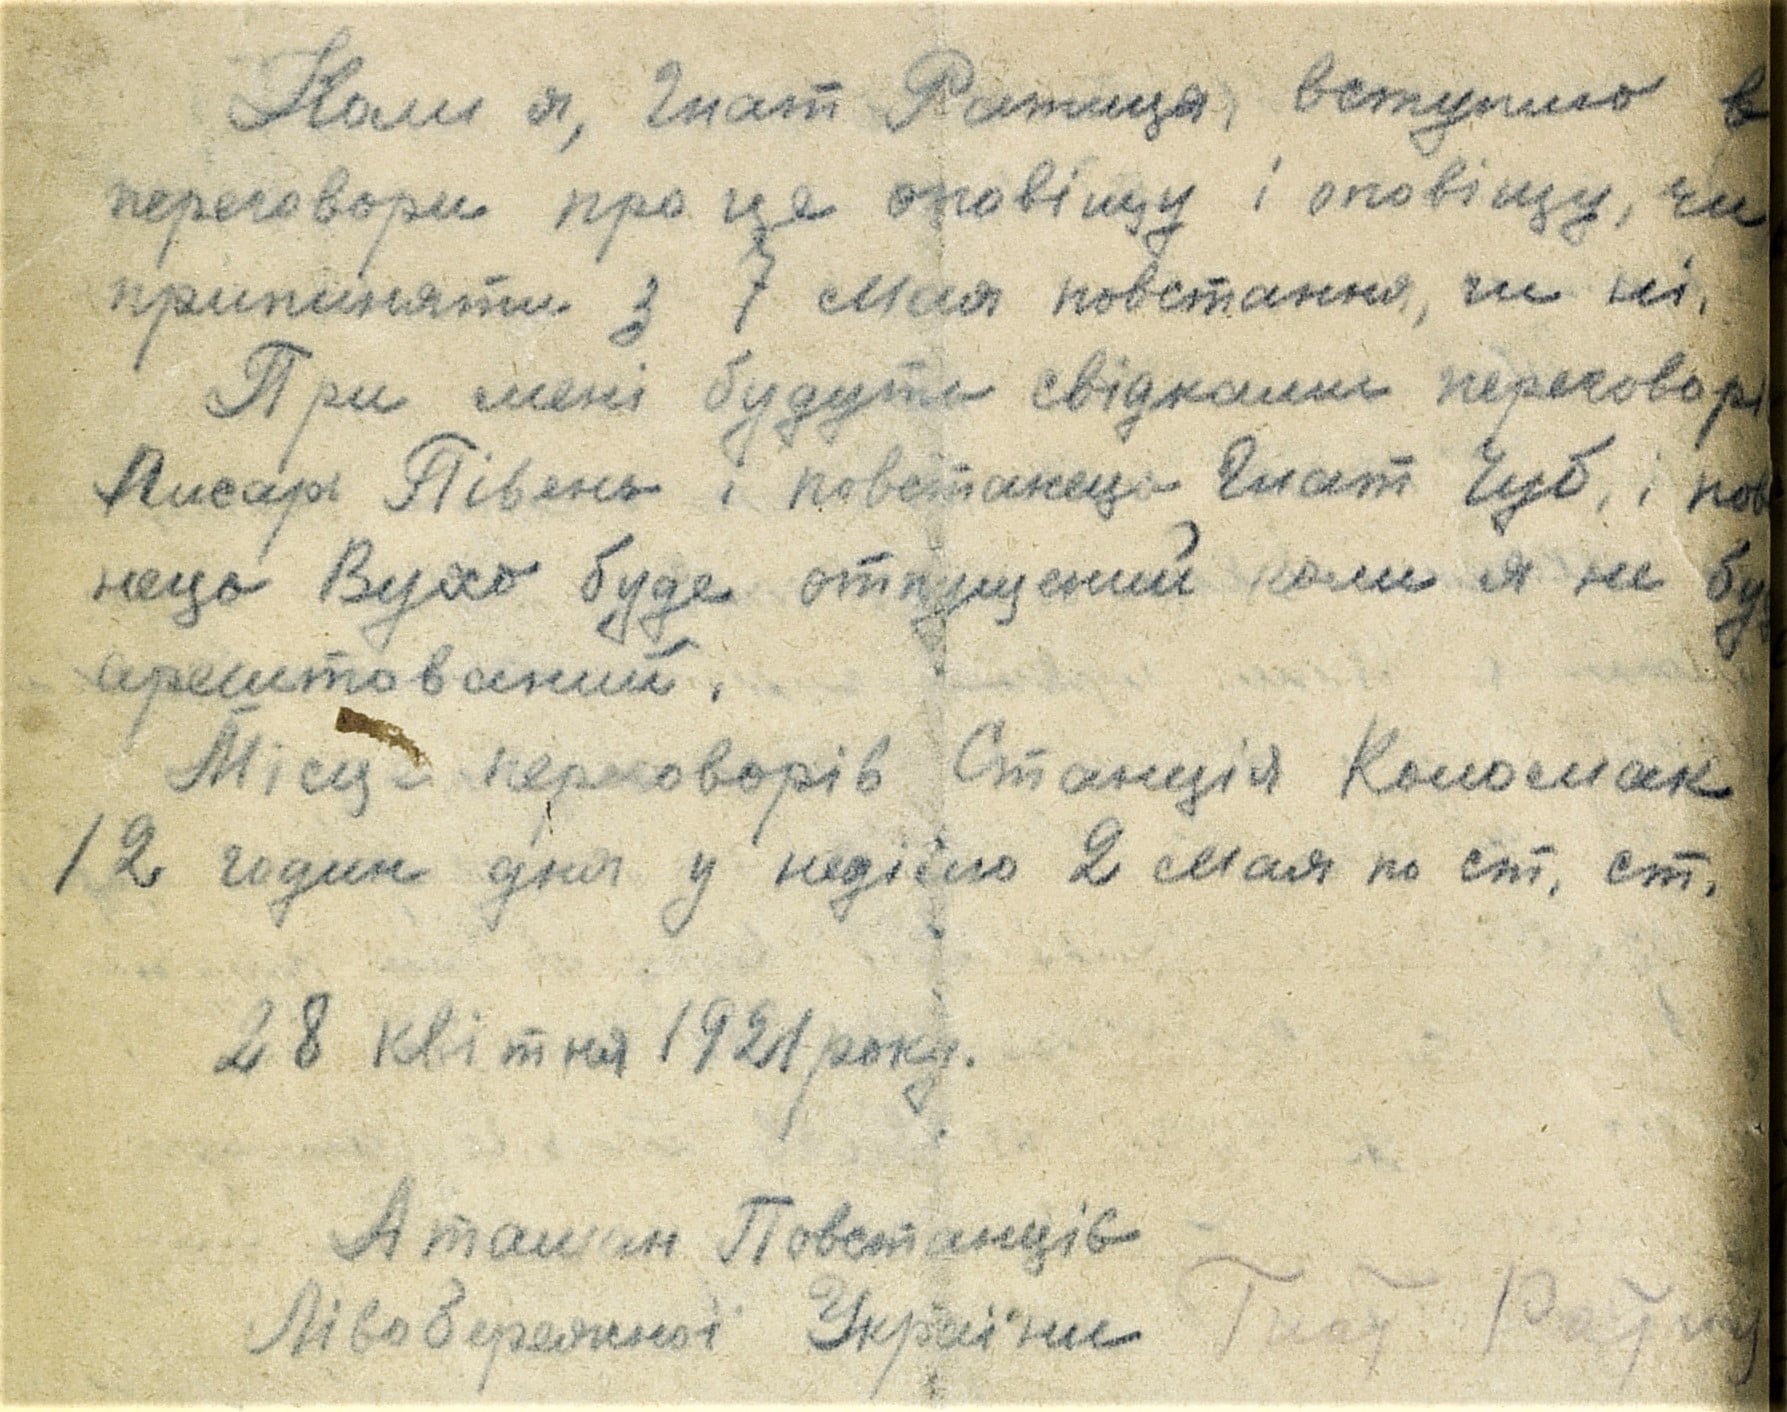 Коли я, Гнат Ратиця, вступлю в
переговори про це оповіщу і оповіщу, чи
припиняти з 7 Мая повстання, чи ні.
При мені будуть свідками переговорі
Писарь Півень і повстанець Гнат Чуб, і пов
нець Вухо буде отпущений коли я не бу
арештований.
Місце переговорів Станція Коломак
12 годин дня у неділю 2 Мая по ст. ст.
28 квітня 1921 року.
Атаман Повстанців
Лівобережної України Гнат